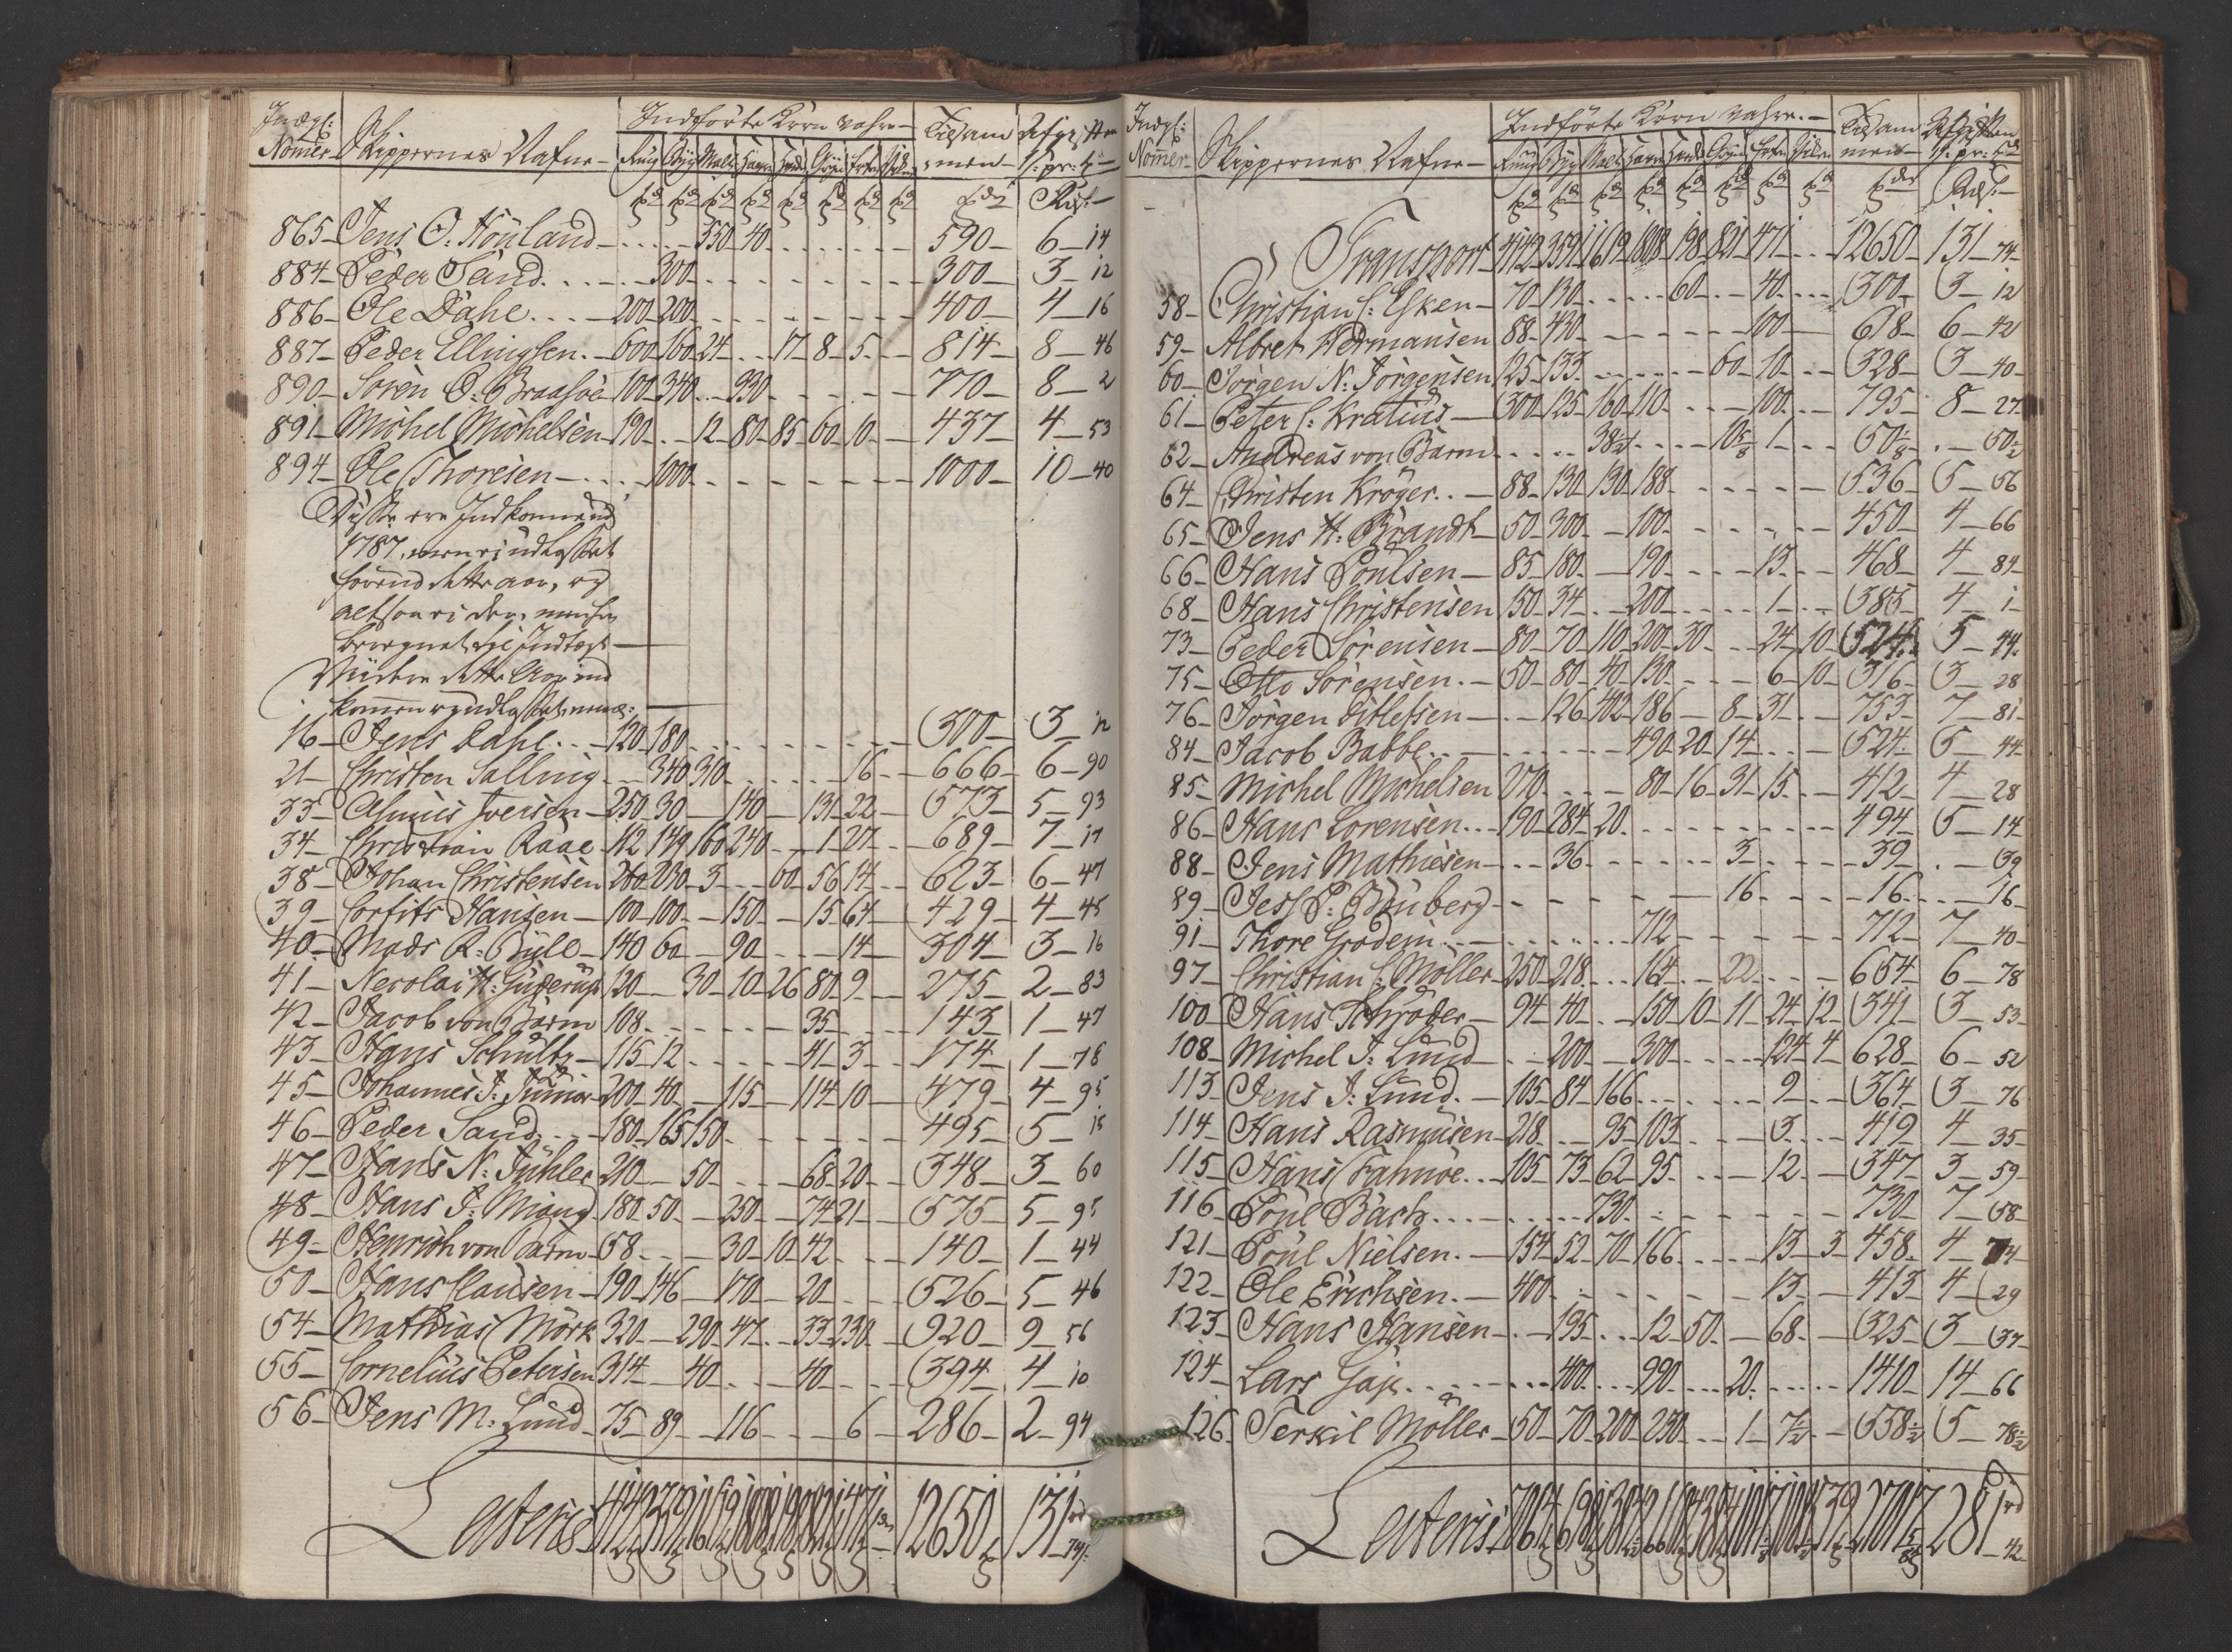 Indgl: Nomer
Skippernes Nafne
Indførte Korn Vahre
Tilsammen
Rug Byg Malt Havre Gryn Erter
Tdr
Rds
865 Jens O. Houland 550 40 590 6 14
884 Peder Sand 300 300 3 12
886 Ole Dahl 200 200 400 4 16
887 Peder Ellingsen 600 160 24 17 8 5 814 8 46
890 Søren O. Braasøe 100 340 330 770 8 2
891 Michel Michelsen 190 12 80 85 60 10 437 4 53
894 Ole Thoresen 1000 1000 10 40
Disse ere Indkommen
1787, men ei udlosset
førend dette aar, og
altsaa ei der
beregnet til Indtægt
Viidere dette Aar ind
kommen og udlosset, nemlig:
16 Jens Dahl 120 180 300 3 12
21 Christen Salling 340 310 16 666 6 90
33 Asmus Iversen 250 30 140 131 22 573 5 93
34 Christian Raae 112 149 160 240 1 27 689 7 17
38 Johan Christensen 260 230 3 60 56 14 623 6 47
39 Corfits Hansen 100 100 150 15 64 429 4 45
40 Mads R. Büll 140 60 90 14 304 3 16
41 Necolai H. Guderup 120 30 10 26 80 9 275 2 83
42 Jacob von Barm 108 35 143 1 47
43 Hans Schultz 115 12 41 3 174 1 78
45 Johannes J. Junior 200 40 115 114 10 479 4 95
46 Peder Sand 180 165 150 495 5 15
47 Hans N. Jühler 210 50 68 20 348 3 60
48 Hans J. Miang 180 50 250 74 21 575 5 95
49 Henrich von Barm 58 30 10 42 140 1 44
50 Hans Clausen 190 146 170 20 526 5 46
54 Mathias Mörk 320 290 47 33 230 920 9 56
55 Cornelius Petersen 314 40 40 394 4 10
56 Jens M. Lund 75 89 116 6 286 2 94
Lateris 12650 131 74
Indgl: Nomer
Skippernes Nafne
Indførte Korn Vahre
Tilsammen
Rug Byg Malt Havre Gryn Erter
Tdr
Rds
Transport 4142 3591 1619 1808 198 821 471 12650 131 74
58 Christian C. Esken 70 130 60 40 300 3 12
59 Albret Hermansen 88 430 100 618 6 42
60 Jørgen N. Jörgensen 125 133 60 10 328 3 40
61 Peter C. Kratius 300 125 160 110 100 795 8 27
62 Andreas von Barm 38½ 10⅝ 1 50⅛ 50½
64 Christen Kröger 88 130 130 188 536 5 56
65 Jens H. Brandt 50 300 100 450 4 66
66 Hans Poulsen 85 180 190 13 468 4 84
68 Hans Christensen 150 34 200 1 385 4 1
73 Peder Sørensen 80 70 110 200 30 24 10 524 5 44
75 Otto Sørensen 50 80 40 130 6 10 316 3 28
76 Jørgen Ditlefsen 126 402 186 8 31 753 7 81
84 Jacob Babbe 490 20 14 524 5 44
85 Michel Michelsen 270 80 16 31 15 412 4 28
86 Hans Lorensen 190 284 20 494 5 14
88 Jens Mathiesen 36 3 39 39
89 Jess P. Bruberg 16 16 16
91 Thore Grodem 712 712 7 40
97 Christian C. Möller 250 218 164 22 654 6 78
100 Hans Schröder 94 40 150 10 11 24 12 341 3 53
108 Michel J. Lund 200 300 124 4 628 6 52
113 Jens J. Lund 105 84 166 9 364 3 76
114 Hans Rasmusen 218 95 103 3 419 4 35
115 Hans Fahnøe 105 73 62 95 12 347 3 59
116 Poul Bach 730 730 7 58
121 Poul Nielsen 154 52 70 166 13 3 458 4 74
122 Ole Erichsen 400 13 413 4 29
123 Hans Hansen 195 12 50 68 325 3 37
124 Lars Gaje 400 990 20 1410 14 66
126 Terkil Möller 50 70 200 230 1 7½ 558½ 5 78½
Lateris 27017⅝ 281 42